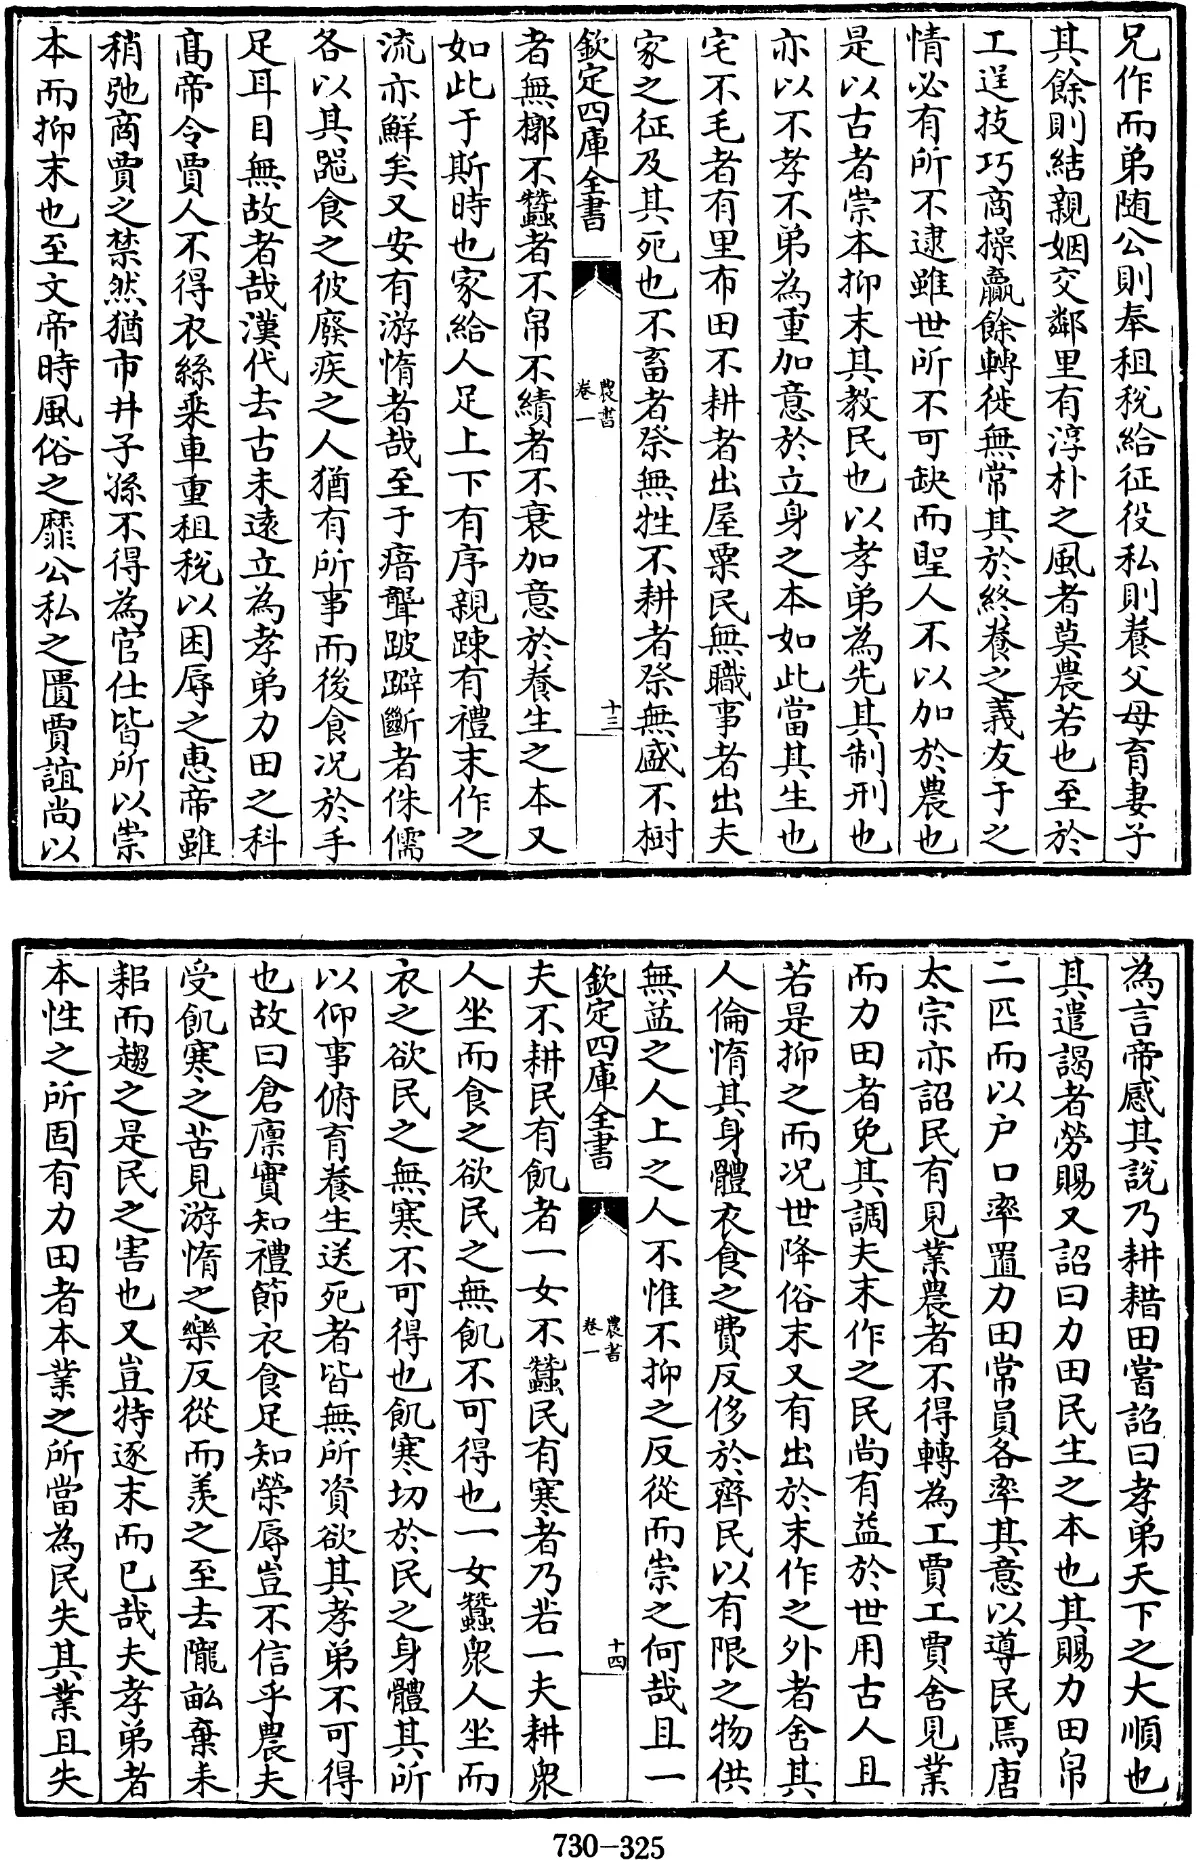 兄作而弟随公則奉租稅給征役私則養父母育妻子
其餘則結親姻交鄰里有淳朴之風者莫農若也至於
工逞技巧商操贏餘轉徙無常其於終養之義友于之
情必有所不逮雖世所不可缺而聖人不以加於農也
是以古者崇本抑末其教民也以孝弟為先其制刑也
亦以不孝不弟為重加意於立身之本如此當其生也
宅不毛者有里布田不耕者出屋粟民無職事者出夫
家之征及其死也不畜者祭無牲不耕者祭無盛不樹
欽定四庫全書
農書
卷一
十三
者無槨不蠶者不帛不績者不衰加意於養生之本又
如此于斯時也家給人足上下有序親踈有禮末作之
流亦鮮矣又安有游惰者哉至于瘖聾跛躃斷者侏儒
各以其噐食之彼廢疾之人猶有所事而後食况於手
足耳目無故者哉漢代去古未遠立為孝弟力田之科
髙帝令賈人不得衣絲乘車重租稅以困辱之惠帝雖
稍弛商賈之禁然猶市井子孫不得為官仕皆所以崇
本而抑末也至文帝時風俗之靡公私之匱賈誼尚以
為言帝感其說乃耕耤田嘗詔曰孝弟天下之大順也
其遣謁者勞賜又詔曰力田民生之本也其賜力田帛
二匹而以户口率置力田常員各率其意以導民焉唐
太宗亦詔民有見業農者不得轉為工賈工賈舍見業
而力田者免其調夫末作之民尚有益於世用古人且
若是抑之而况世降俗末又有出於末作之外者舍其
人倫惰其身體衣食之費反侈於齊民以有限之物供
無益之人上之人不惟不抑之反從而崇之何哉且一
欽定四庫全書
農書
卷一
十四
夫不耕民有飢者一女不蠶民有寒者乃若一夫耕衆
人坐而食之欲民之無飢不可得也一女蠶衆人坐而
衣之欲民之無寒不可得也飢寒切於民之身體其所
以仰事俯育養生送死者皆無所資欲其孝弟不可得
也故曰倉廪實知禮節衣食足知榮辱豈不信乎農夫
受飢寒之苦見游惰之樂反從而羡之至去隴畝棄耒
耜而趨之是民之害也又豈特逐末而已哉夫孝弟者
本性之所固有力田者本業之所當為民失其業且失
730-325